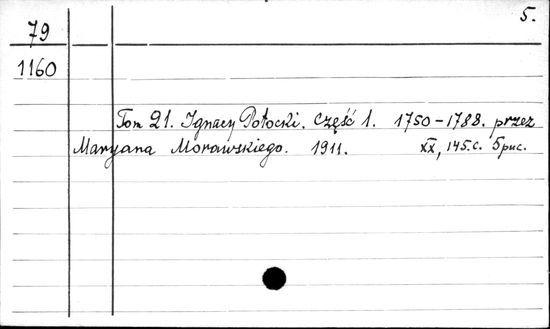 5.
79
1160
Tom 21. Ignacy Potocki. Część 1. 1750-1788. przez
Maryana Morawskiego. 1911. XX, 145.c. 5 рис.